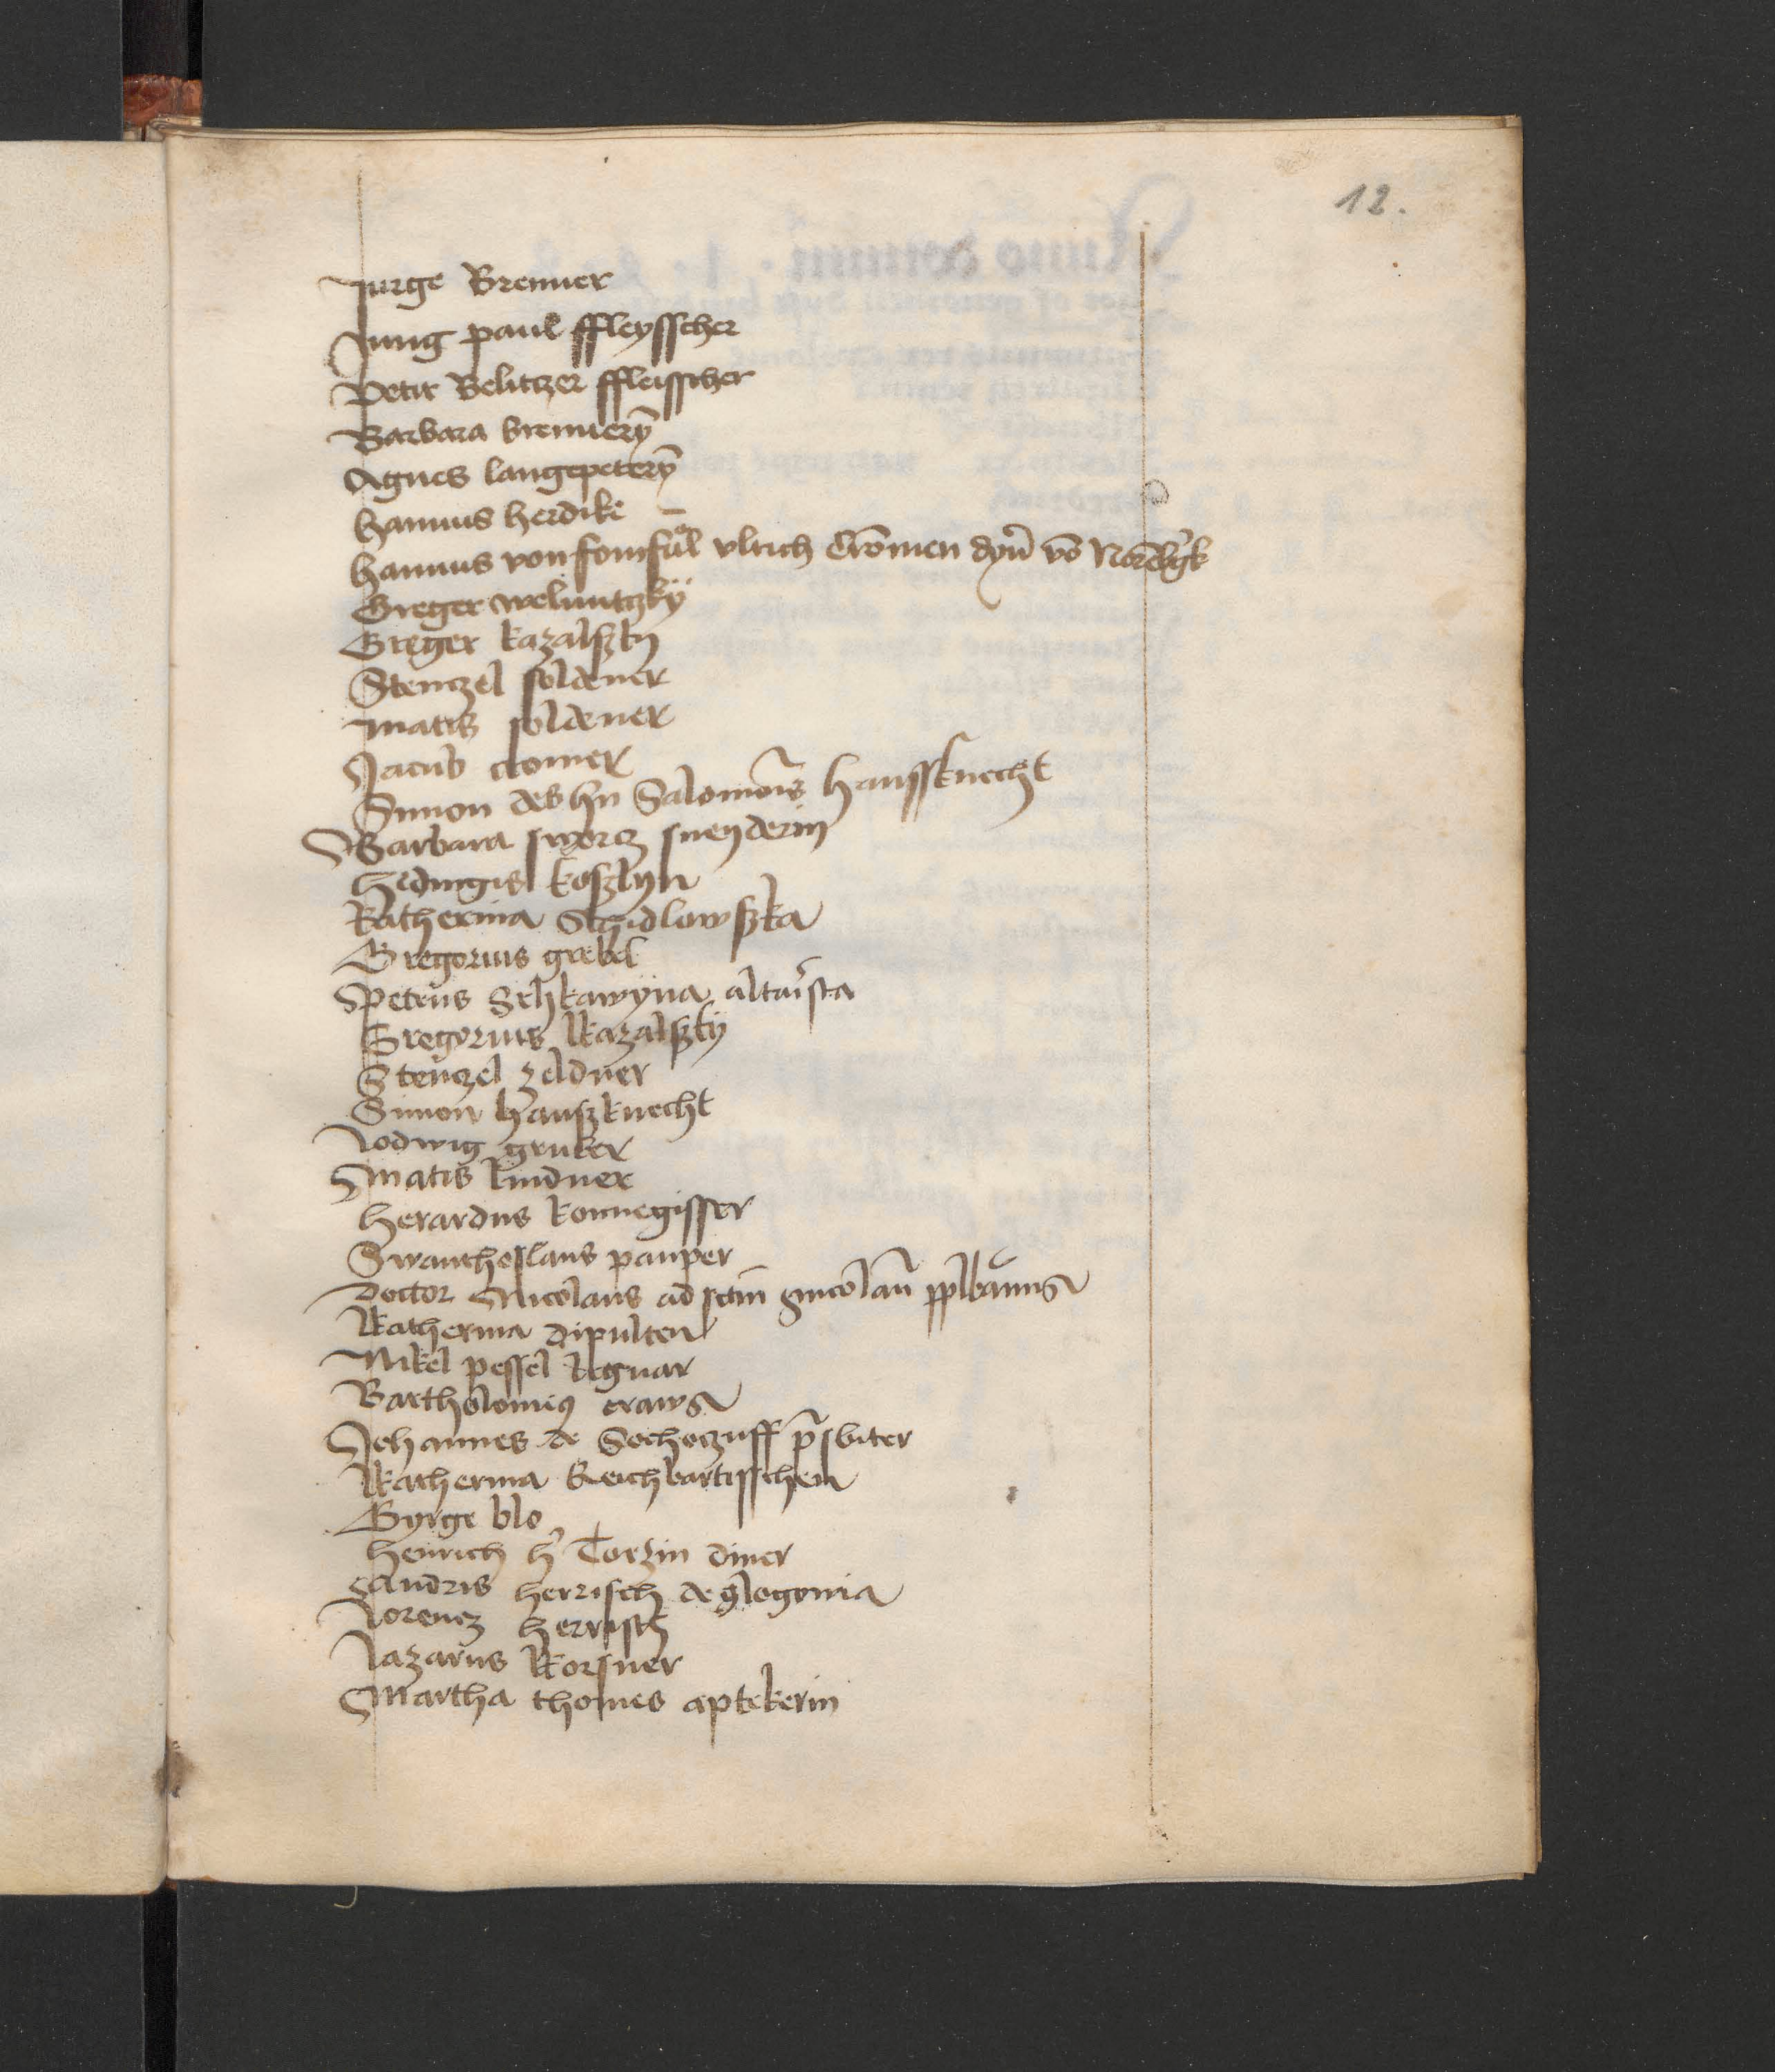 12.
Jurge Brenner
Jung paul ffleysscher
Petir Belitczer ffleisscher
Barbara brennerȳ
Agnes langepeterȳ
hannus herdike
hannus von vlrich dyn̄ vō
Greger weluntczky
Greger kazalszky
Stenczel soldener
Matis soldener
Jacub cromer
Simon des hn Salomōis haussknecht
Barbara sworcz sneyderin
hedwigis koszlyn
Katherina Schidlowszka
Gregorius grebel
Petrus altar̄sta
Gregorius kazalszky
Stenczel zeldner
Simon hauszknecht
Lodwig gruber
Matis lindner
herardus konnegisser
Swanthoslaus pauper
Doctor Nicolaus ad sctm̄ nicolaū
Katherina dipulten
Nikel pessel
Bartholomeus craws
Johannes de Sochoczuff p̄sbiter
Katherina Reichbartisschen
Gyrge blo
heinrich h̄ Torzin diner
Andris herrisch de glogovia
Lorencz herrisch
Lazarus korsner
Martha thomes aptekerin